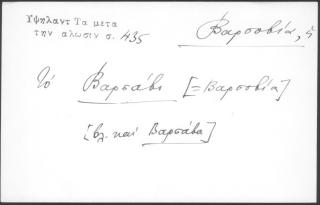 Υψηλαντ Τα μετα
την αλωσιν σ. 435
Βαρσοβία, ἡ
Τό Βαρσάβι [=Βαρσοβία]
[βλ. καί Βαρσάβα]